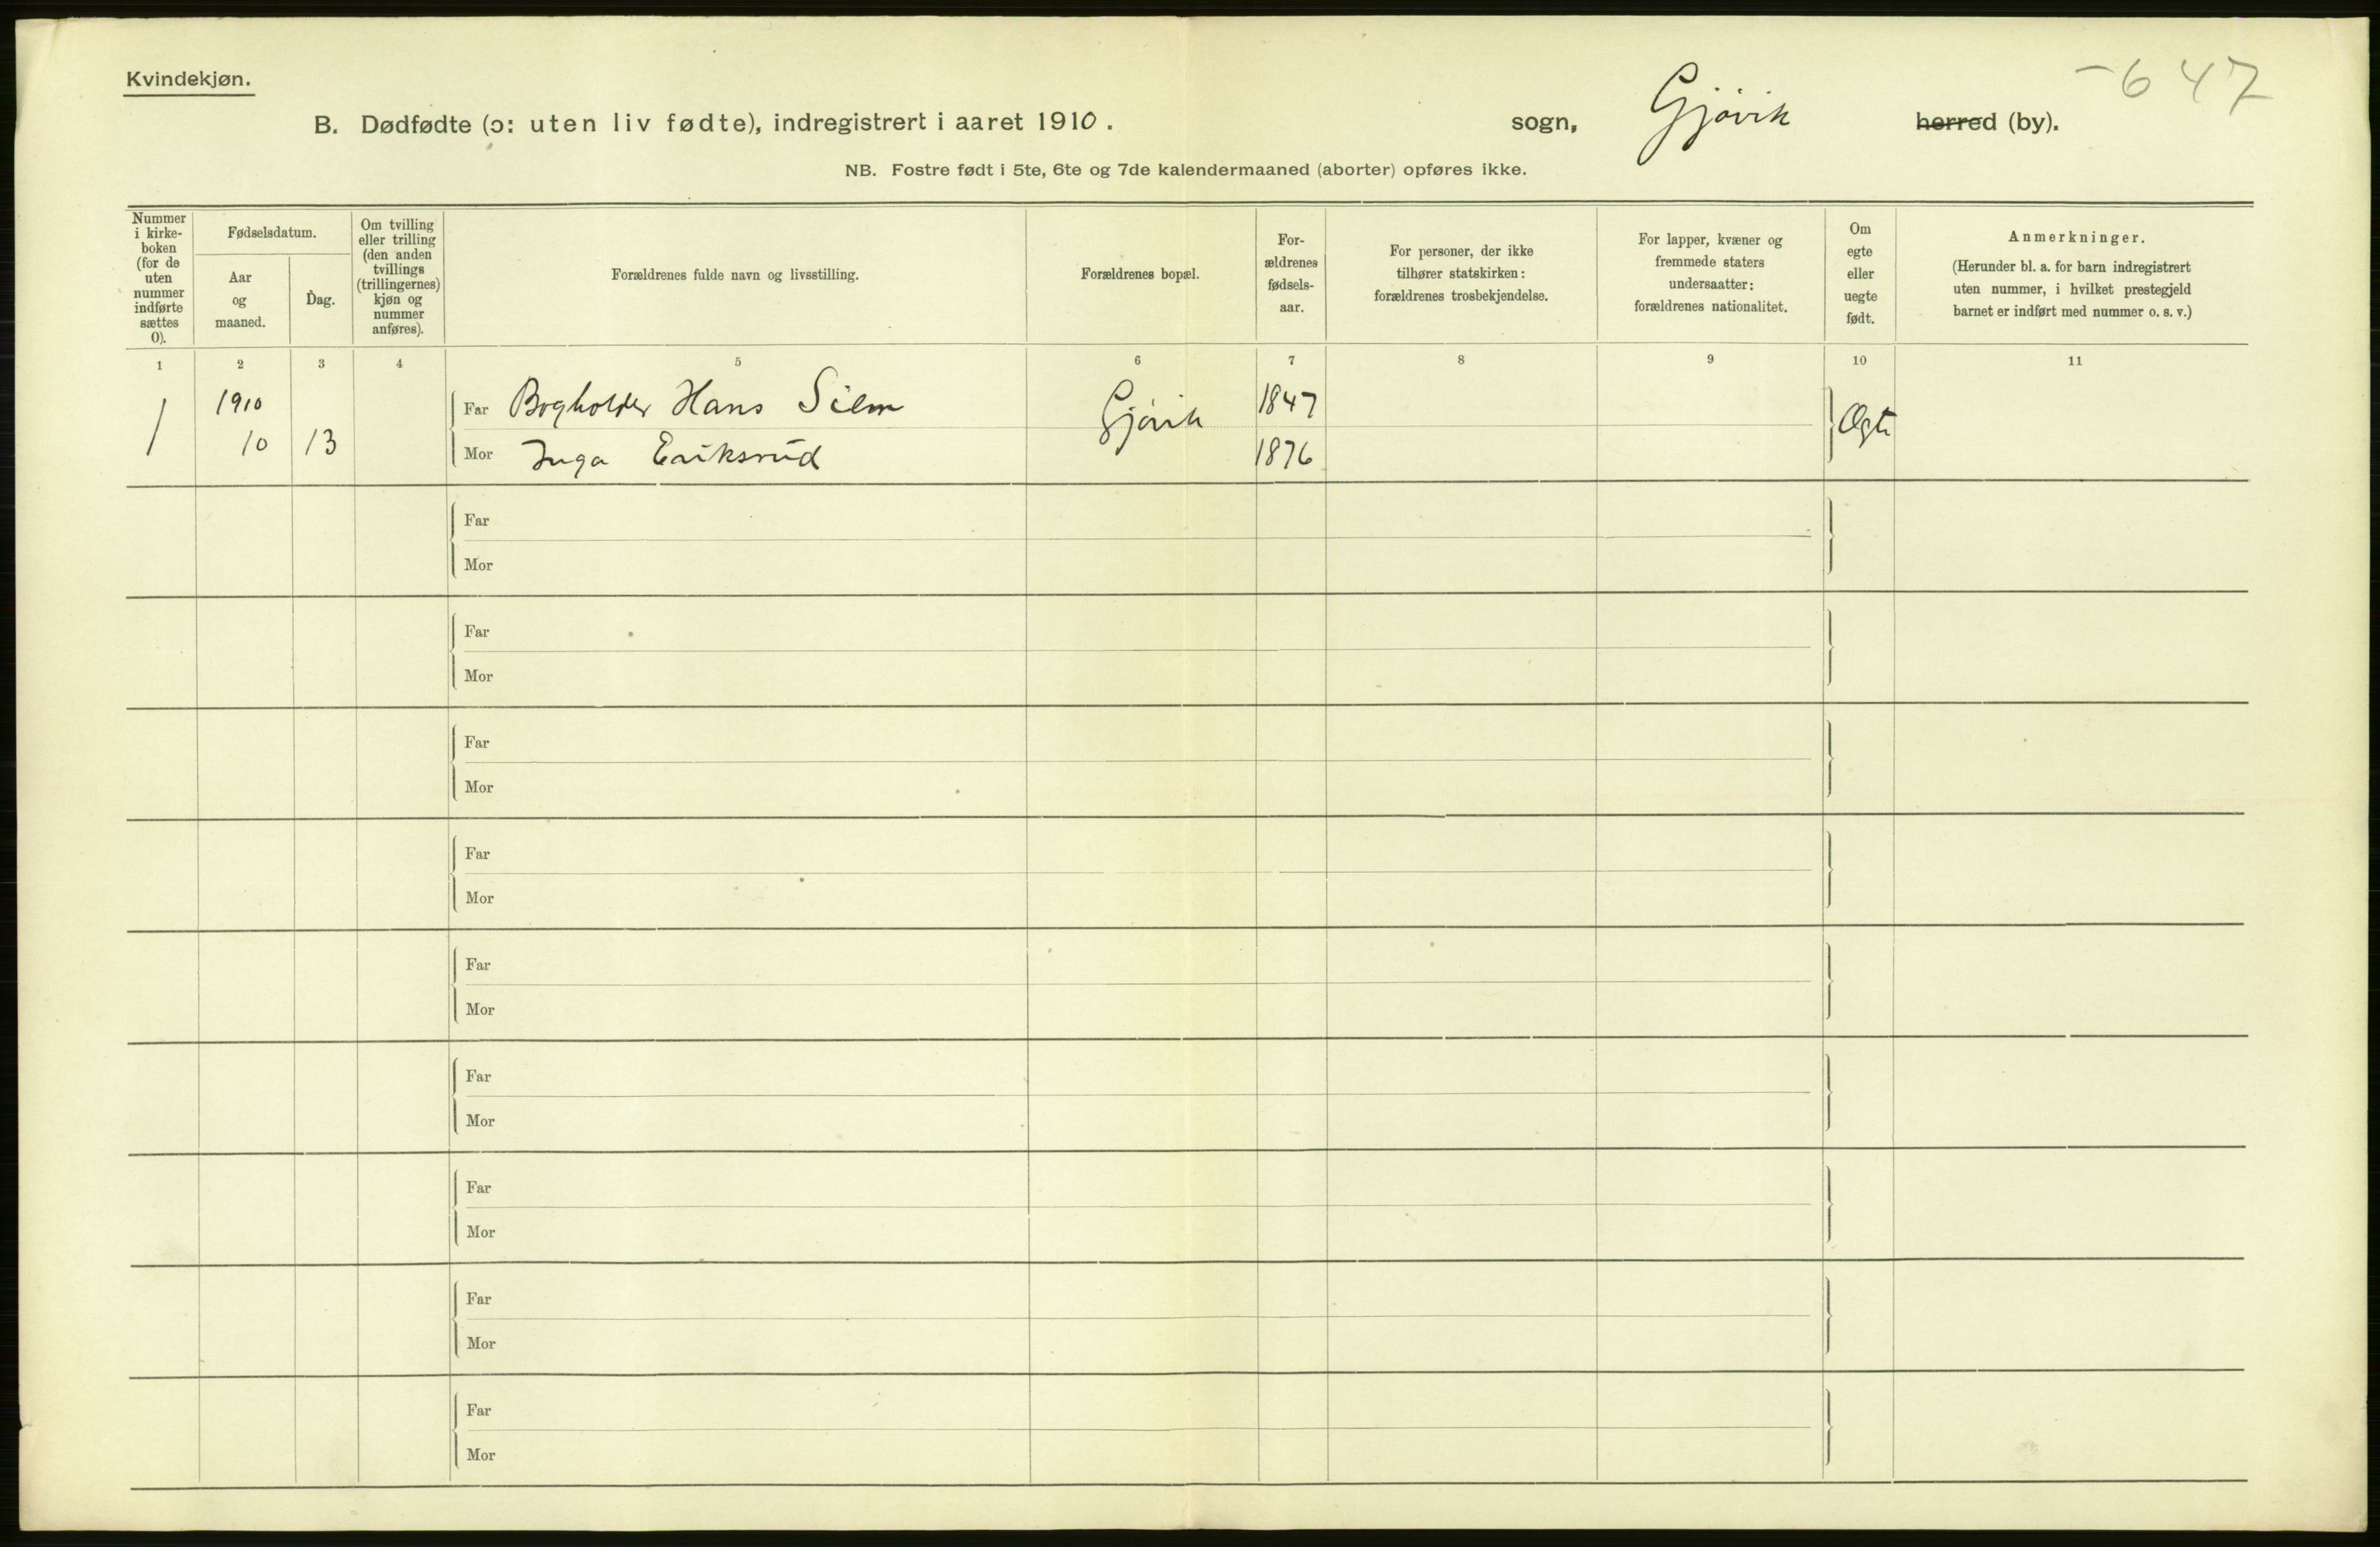 Kvindekjøn.
-647
B. Dødfødte (ɔ: uten liv fødte), indregistrert i aaret 1910. sogn, Gjøvik herred (by).
NB. Fostre født i 5te, 6te og 7de kalendermaaned (aborter) opføres ikke.
Nummer
i kirke-
boken
(for de
uten
nummer
indførte
sættes
0).
Fødselsdatum.
Aar
og
maaned.
Dag.
Om tvilling
eller trilling
(den anden
tvillings
(trillingernes)
kjøn og
nummer
anføres).
Forældrenes fulde navn og livsstilling.
Forældrenes bopæl.
For-
ældrenes
fødsels-
aar.
For personer, der ikke
tilhører statskirken:
forældrenes trosbekjendelse.
For lapper, kvæner og
fremmede staters
undersaatter:
forældrenes nationalitet.
Om
egte
eller
uegte
født.
Anmerkninger.
(Herunder bl. a. for barn indregistrert
uten nummer, i hvilket prestegjeld
barnet er indført med nummer o. s. v.)
1 2 3 4 5 6 7 8 9 10 11
1 1910 10 13
Far Bogholder Hans Siem Gjøvik 1847 Ægte
Mor Inga Eriksrud 1876
Far
Mor
Far
Mor
Far
Mor
Far
Mor
Far
Mor
Far
Mor
Far
Mor
Far
Mor
Far
Mor